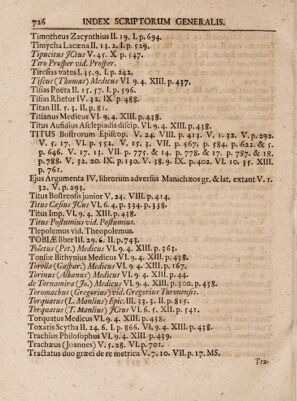 726 INDEX SCRIPTORUM GENERALIS.
Timotheus Zacynthius II. 19. I. p. 694.
Timycha Lacæna II. 13. 2. I. p. 529.
Tipucitus JCtus V. 45. X p. 547.
Tiro Prosper vid. Prosper.
Tiresias vates I. 35. 9. I. p. 242.
Tiscus (Thomas) Medicus VI 9. 4. XIII. p. 437.
Tisias Poeta II. 15. 57. I. p. 596.
Tisias Rhetor IV. 32. IX p. 488.
Titan III. 5. 3. II. p. 81.
Titianus Medicus VI. 9. 4. XIII. p. 438.
Titus Aufidius Asclepiadis discip. VI. 9. 4. XIII. p. 438.
TITUS Bostrorum Episcop. V. 24. VIII. p. 413. V. 1. 32. V. p. 292.
V. 5. 17. VI. p. 552. V. 15. 3. VII. p. 567. p. 584. p. 622. & 5.
p. 646. V. 17. 13. VII. p. 775. & 14. p. 778. V. 17. p. 787. & 18.
p. 788. V. 32. 20. IX. p. 130. V. 38. 9. IX. p. 402. VI. 10. 35. XIII.
p. 761.
Ejus Argumenta IV. librorum adversus Manichæos gr. & lat. extant V. 1.
32. V. p. 293.
Titus Bostrensis junior V. 24. VIII. p. 414.
Titus Casius JCtus VI. 6. 4. p. 334. p. 338.
Titus Imp. VI. 9. 4. XIII. p. 438.
Titus Postumius vid. Postumius.
Tlepolemus vid. Theopolemus.
TOBIÆ liber III. 29. 6. II. p. 743.
Toletus (Pet.) Medicus VI. 9. 4. XIII. p. 363.
Tonsor Bithynius Medicus VI. 9. 4. XIII. p. 438.
Torella (Gaspar.) Medicus VI. 9. 4. XIII. p. 167.
Torinus (Albanus) Medicus VI. 9. 4. XIII. p. 44.
de Tornamira (Jo.) Medicus VI. 9. 4. XIII. p. 300. p. 438.
Toromachus (Gregorius) vid. Gregorius Turonensis.
Torquatus (L. Manlius) Epic. III. 33. 3. II. p. 815.
Torquatus (T. Manlius) JCtus VI. 6. 5. XII. p. 541.
Torquatus Medicus VI. 9. 4. XIII. p. 438.
Toxaris Scytha II. 24. 6. I. p. 866. VI. 9. 4. XIII. p. 438.
Trachius Philosophus VI. 9. 4. XIII. p. 439.
Trachæus (Joannes) V. 5. 28. VI. p. 701.
Tractatus duo græci de re metrica V. 7. 10. VII. p. 17. MS.
Tra-